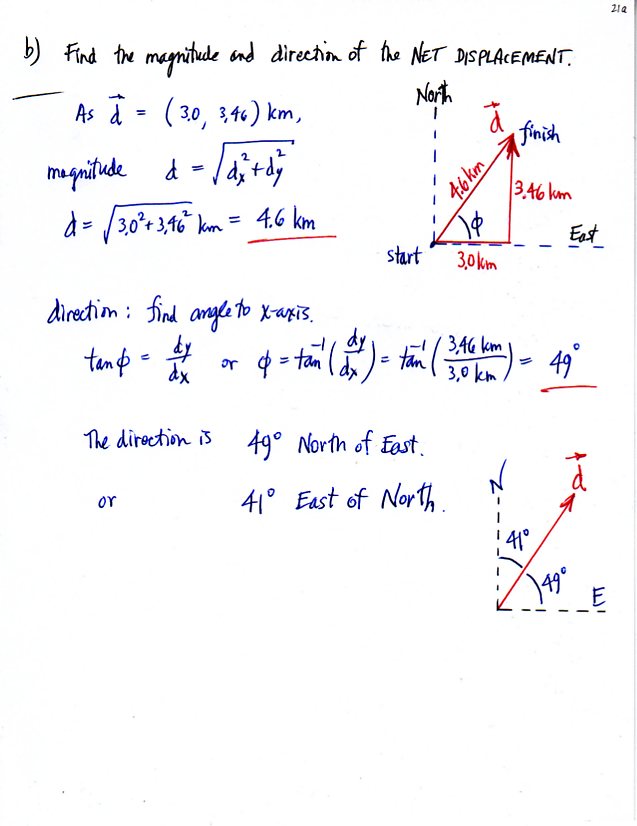 21a
b) Find the magnitude and direction of the NET DISPLACEMENT.
As d⃗ = (3.0, 3.46) km,
magnitude d = √(dx² + dy²)
d = √(3.0² + 3.46²) km = 4.6 km
North
d⃗
finish
4.6 km
3.46 km
ϕ
East
start
3.0 km
direction : find angle to x-axis.
tan ϕ = dy/dx or ϕ = tan⁻¹(dy/dx) = tan⁻¹(3.46 km/3.0 km) = 49°
The direction is 49° North of East.
or 41° East of North.
N
d⃗
41°
49°
E